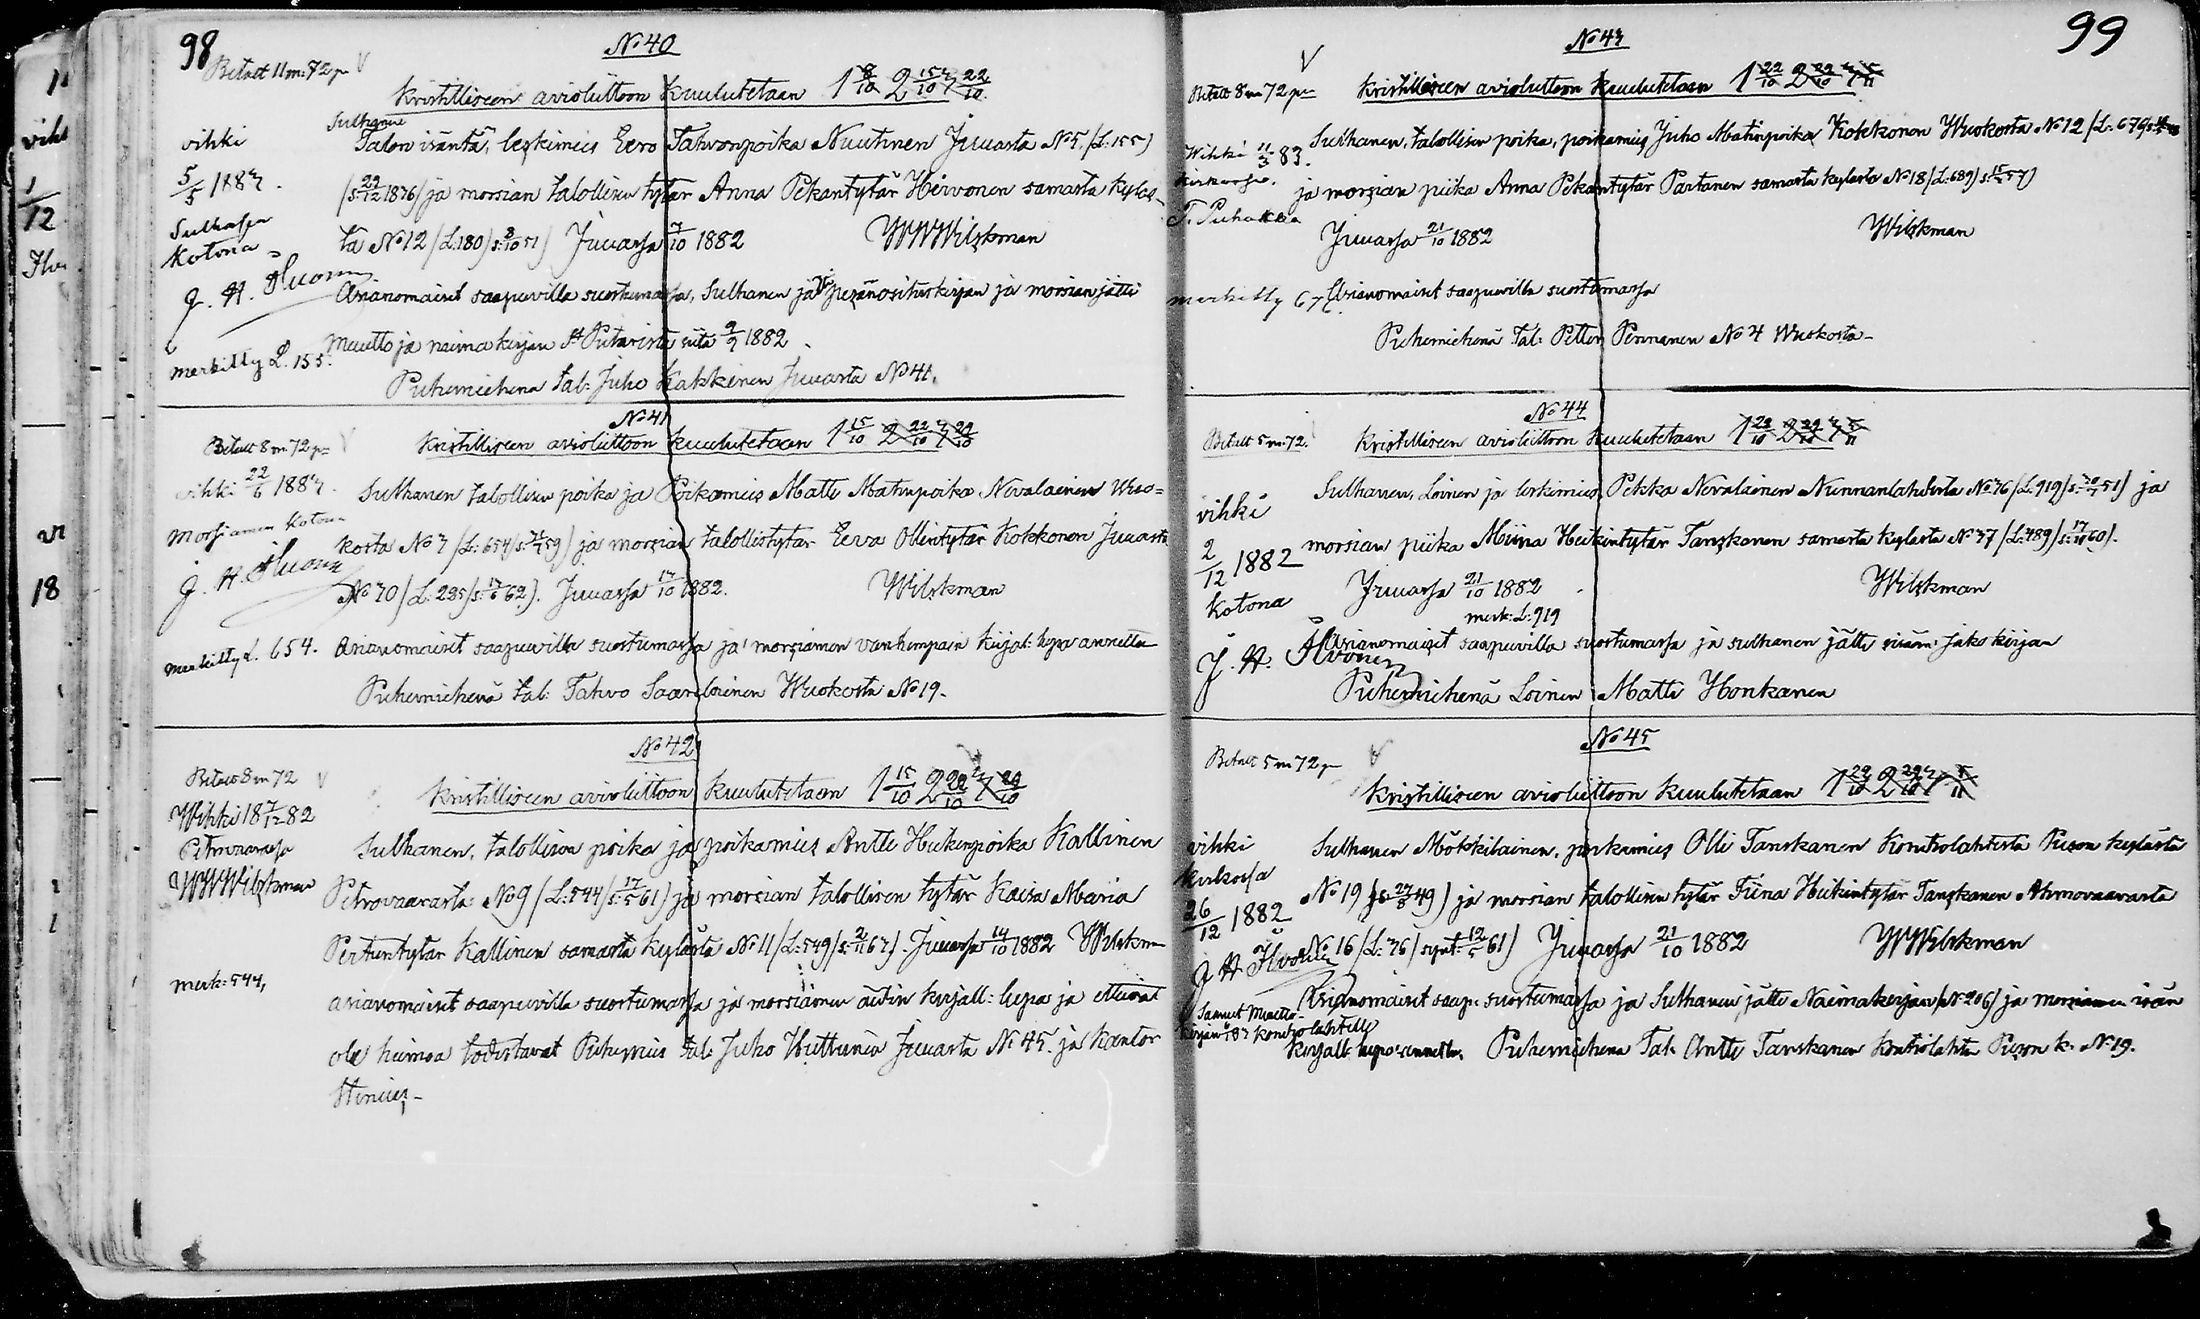 98
No 40
Betalt 11 m: 72 p V
Kristilliseen avioliittoon kuulutetaan 1 8/10 2 15/10 3 22/10
vihki
5/5 1883.
Sulhasen
kotona
J. H. Ihvonen
merkitty L. 155.
Sulhanen
Talon isäntä, leskimies Eero Tahvonpoika Nuutinen Juuasta No 5 (L: 155)
(s: 29/12 1876) ja morsian talollisen tytär Anna Pekantytär Hirvonen samasta kyläs-
tä No 12 (L:180) s: 8/10 51) Juuassa 7/10 1882 WWWilskman
Asianomaiset saapuvilla suostumassa, Sulhanen jätti perinösituskirjan ja morsian jätti
muutto ja naima kirjan St Pietarista siitä 9/9 1882.
Puhemiehenä tal: Juho Kakkinen Juuasta No 41.
No 41
Betalt 8 m. 72 p V
Kristilliseen avioliittoon kuulutetaan 1 15/10 2 22/10 3 29/10
vihki 22/6 1883.
Morsiamen kotona
J. H. Ihvonen
merkitty L. 654.
Sulhanen talollisen poika ja Poikamies Matti Matinpoika Nevalainen Wuo=
kosta No 3 (L: 654/s: 59) ja morsian talollistytär Eeva Ollintytär Kokkonen Juuasta
No 70 (L: 225/s: 17/6 62.). Juuassa 14/10 1882. Wilskman
Asianomaiset saapuvilla suostumassa ja morsiamen vanhempain kirjal: lupa annettu
Puhemiehenä tal: Tahvo Saarelainen Wuokosta No 19.
No 42
Betalt 8 m 72 V
Kristilliseen avioliittoon kuulutetaan 1 15/10 2 22/10 3 29/10
Wihki 18 7/12 82
Petrovaarassa
WWWilskman
merk: 544,
Sulhanen, talollisen poika ja poikamies Antti Heikinpoika Kallinen
Petrovaarasta No 9 (L: 544/s: 17/5 61) ja morsian talollisen tytär Kaisa Maria
Pertuntytär Kallinen samasta kylästä No 11 (L: 549/s: 2/11 63). Juuassa 14/10 1882 Wilskm
asianomaiset saapuvilla suostumassa ja morsiamen äidin kirjall: lupa ja etteivät
ole heimoa todistavat Puhemies tal: Juho Huttunen Juuasta No 45. ja kantor
Stenius,-
99
No 43
V
Betalt 8 m 72 p
Kristilliseen avioliittoon kuulutetaan 1 22/10 2 29/10 3 5/11
Wihki 11/3 83.
kirkossa.
T. Puhakka
merkitty 676
Sulhanen, talollisen poika, poikamies Juho Matinpoika Kokkonen Wuokosta No 12 (L: 676/s:
ja morsian piika Anna Pekantytär Partanen samasta kylästä No 18 (L: 689) s: 57)
Juuassa 21/10 1882 Wilskman
Asianomaiset saapuvilla suostumassa
Puhemiehenä Tal: Petter Pennanen No 4 Wuokosta-
No 44
Betalt 5 m. 72.
Kristilliseen avioliittoon kuulutetaan 1 22/10 2 29/10 3 5/11
vihki
2/12 1882
kotona
J. H. Ihvonen
Sulhanen, Loinen ja leskimies Pekka Nevalainen Nunnanlahdesta No 76 (L: 919/s: 51) ja
morsian piika Miina Heikintytär Tanskanen samasta kylästä No 37 (L: 489/s: 17/11 60).
Juuassa 21/10 1882 Wilskman
merk: L: 919
Asianomaiset saapuvilla suostumassa ja sulhanen jätti sisään jako kirjan
Puhemiehenä Loinen Matti Honkanen
No 45
Betalt 5 m 72 p V
Kristilliseen avioliittoon kuulutetaan 1 22/10 2 29/10 3 5/11
vihki
kirkossa
26/12 1882
J H Ihvonen
Saanut Muutto-
kirjan 83 kontiolahtelle
Sulhanen Mökkiläinen, poikamies Olli Tanskanen Kontiolahdesta Puson kylästä
No 19 (s: 27/5 49) ja morsian talollisen tytär Tiina Heikintytär Tanskanen Ahmovaarasta
No 16 (L: 36/synt: 12/5 61) Juuassa 21/10 1882 WWilskman
Asianomaiset saap: suostumassa ja Sulhanen jätti Naimakirjan (No 206) ja morsiamen isän
kirjall: lupa annettu. Puhemiehenä Tal: Antti Tanskanen Kontiolahti Puson k: No 19.